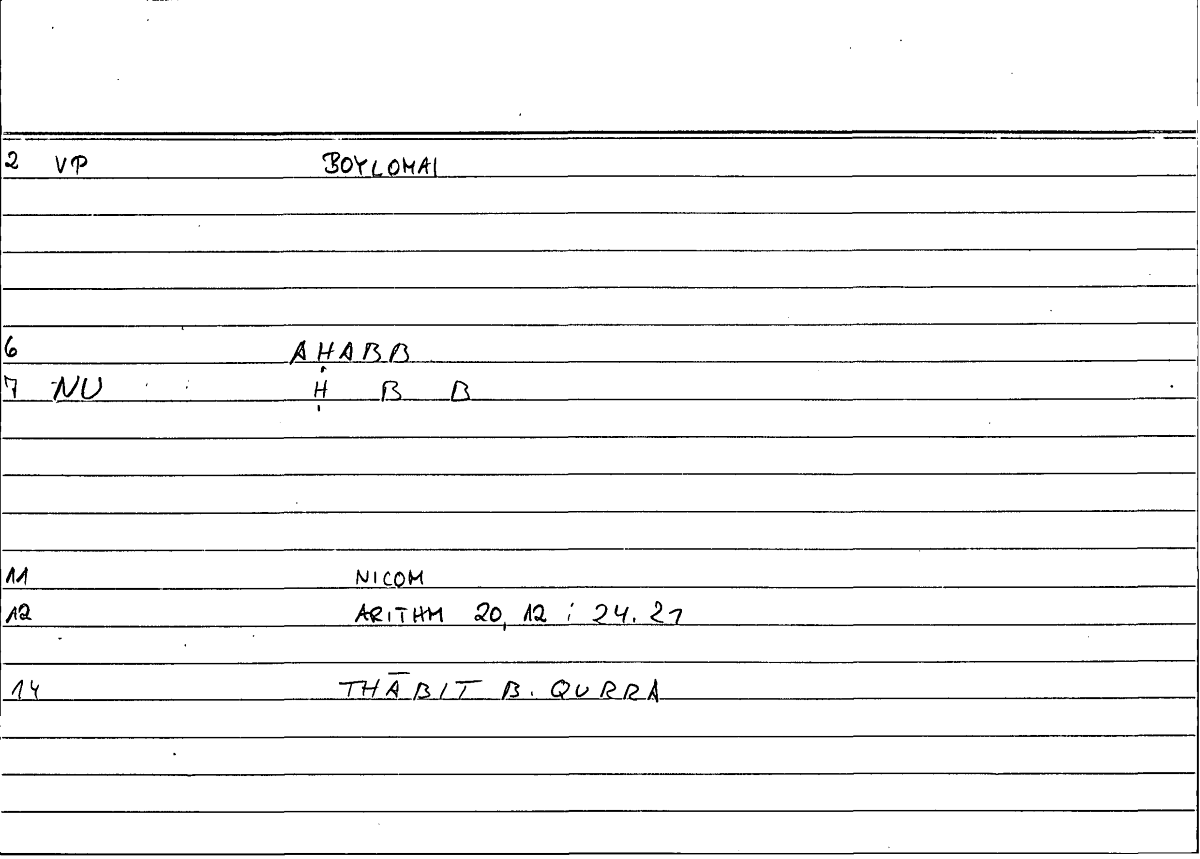 2 VP BOYLOMAI
6 AḤABB
7 NU Ḥ B B
11 NICOM
12 ARITHM 20, 12 ; 24. 21
14 THĀBIT B. QURRA